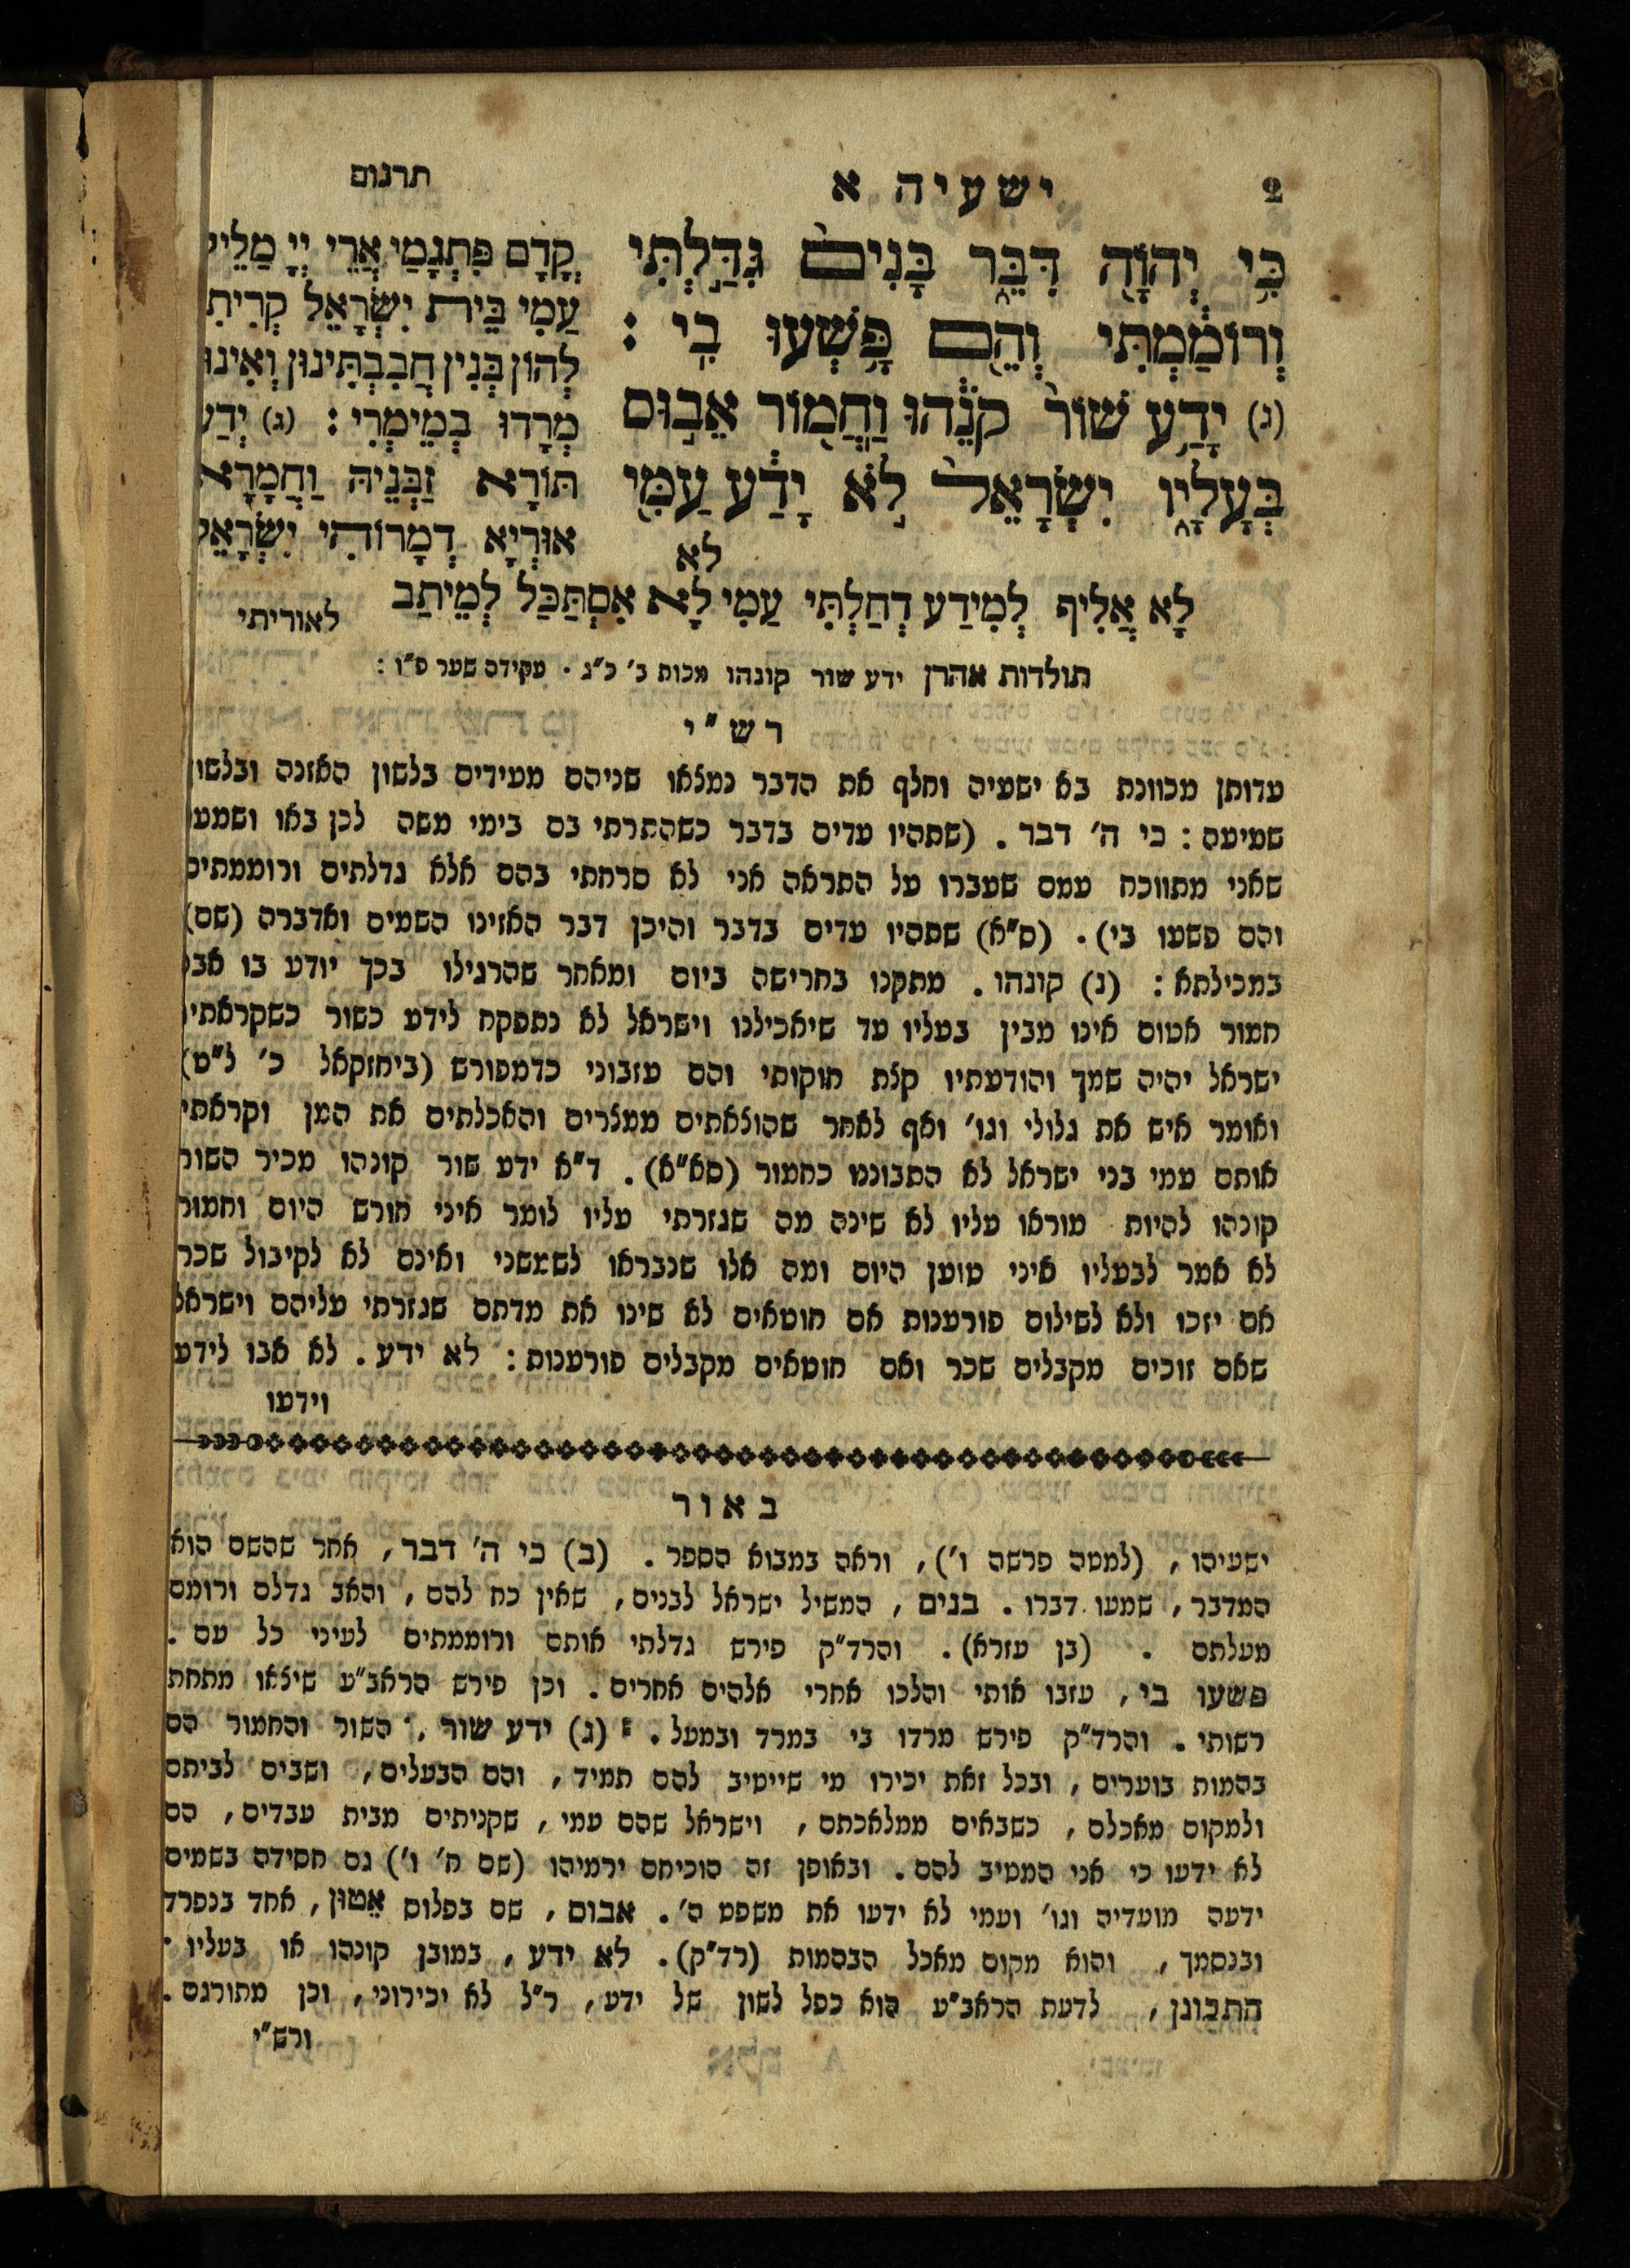 2
ישעיה א
תרגום
כִּ֥י יְהוָ֖ה דִּבֵּ֑ר בָּנִים֙ גִּדַּ֣לְתִּי
וְרוֹמַ֔מְתִּי וְהֵ֖ם פָּ֥שְׁעוּ בִֽי :
(ג) יָדַ֥ע שׁוֹר֙ קֹנֵ֔הוּ וַחֲמ֖וֹר אֵב֣וּס
בְּעָלָ֑יו יִשְׂרָאֵל֙ לֹ֣א יָדַ֔ע עַמִּ֖י
לא
קֳדָם פִּתְגָמַי אֲרֵי יְיָ מַלֵיל
עַמִי בֵּית יִשְׂרָאֵל קְרֵיתִי
לְהוֹן בְּנִין חֲבִבְתִּינוּן וְאִינוּן
מְרָדוּ בְמֵימְרִי : (ג) יְדַע
תּוֹרָא זַבְּנֵיהּ וַחֲמָרָא
אוּרְיָא דְמָרוֹהִי יִשְׂרָאֵל
לָא אֲלִיף לְמִידַע דְחַלְתִּי עַמִי לָא אִסְתַּכַּל לְמֵיתַב
לאוריתי
תולדות אהרן ידע שור קונהו מכות ב׳ כ״ג . עקידה שער ס״ו :
רש״י
עדותן מכוונת בא ישעיה וחלף את הדבר נמצאו שניהם מעידים בלשון האזנה ובלשון
שמיעה : כי ה׳ דבר . (שתהיו עדים בדבר כשהתרתי בם בימי משה לכן באו ושמעו
שאני מתווכח עמם שעברו על התראה אני לא סרחתי בהם אלא גדלתים ורוממתים
והם פשעו בי) . (ס״א) שתהיו עדים בדבר והיכן דבר האזינו השמים ואדברה (שם)
במכילתא : (ג) קונהו . מתקנו בחרישה ביום ומאחר שהרגילו בכך יודע בו אבל
חמור אטום אינו מבין בעליו עד שיאכילנו וישראל לא נתפקח לידע כשור כשקראתיו
ישראל יהיה שמך והודעתיו קצת חוקותי והם עזבוני כדמפורש (ביחזקאל כ׳ ל״ט)
ואומר איש את גלולי וגו׳ ואף לאחר שהוצאתים ממצרים והאכלתים את המן וקראתי
אותם עמי בני ישראל לא התבוננו כחמור (סא״א) . ד״א ידע שור קונהו מכיר השור
קונהו להיות מוראו עליו לא שינה מה שגזרתי עליו לומר איני חורש היום וחמור
לא אמר לבעליו איני טוען היום ומה אלו שנבראו לשמשני ואינם לא לקיבול שכר
אם יזכו ולא לשילום פורענות אם חוטאים לא שינו את מדתם שגזרתי עליהם וישראל
שאם זוכים מקבלים שכר ואם חוטאים מקבלים פורענות : לא ידע . לא אבו לידע
וידעו
באור
ישעיהו , (למטה פרשה ו׳) , וראה במבוא הספר . (ב) כי ה׳ דבר , אחר שהשם הוא
המדבר , שמעו דברו . בנים , המשיל ישראל לבנים , שאין כח להם , והאב גדלם ורומם
מעלתם . (בן עזרא) . והרד״ק פירש גדלתי אותם ורוממתים לעיני כל עם .
פשעו בי , עזבו אותי והלכו אחרי אלהים אחרים . וכן פירש הראב״ע שיצאו מתחת
רשותי . והרד״ק פירש מרדו בי במרד ובמעל . : (ג) ידע שור , השור והחמור הם
בהמות בוערים , ובכל זאת יכירו מי שייטיב להם תמיד , והם הבעלים , ושבים לביתם
ולמקום מאכלם , כשבאים ממלאכתם , וישראל שהם עמי , שקניתים מבית עבדים , הם
לא ידעו כי אני המטיב להם . ובאופן זה הוכיחם ירמיהו (שם ח׳ ו׳) גם חסידה בשמים
ידעה מועדיה וגו׳ ועמי לא ידעו את משפט ה׳ . אבוס , שם בפלוס אֵטוּן , אחד בנפרד
ובנסמך , והוא מקום מאכל הבהמות (רד״ק) . לא ידע , במובן קונהו או בעליו .
התבונן , לדעת הראב״ע הוא כפל לשון של ידע , ר״ל לא יכירוני , וכן מתורגם .
ורש״י